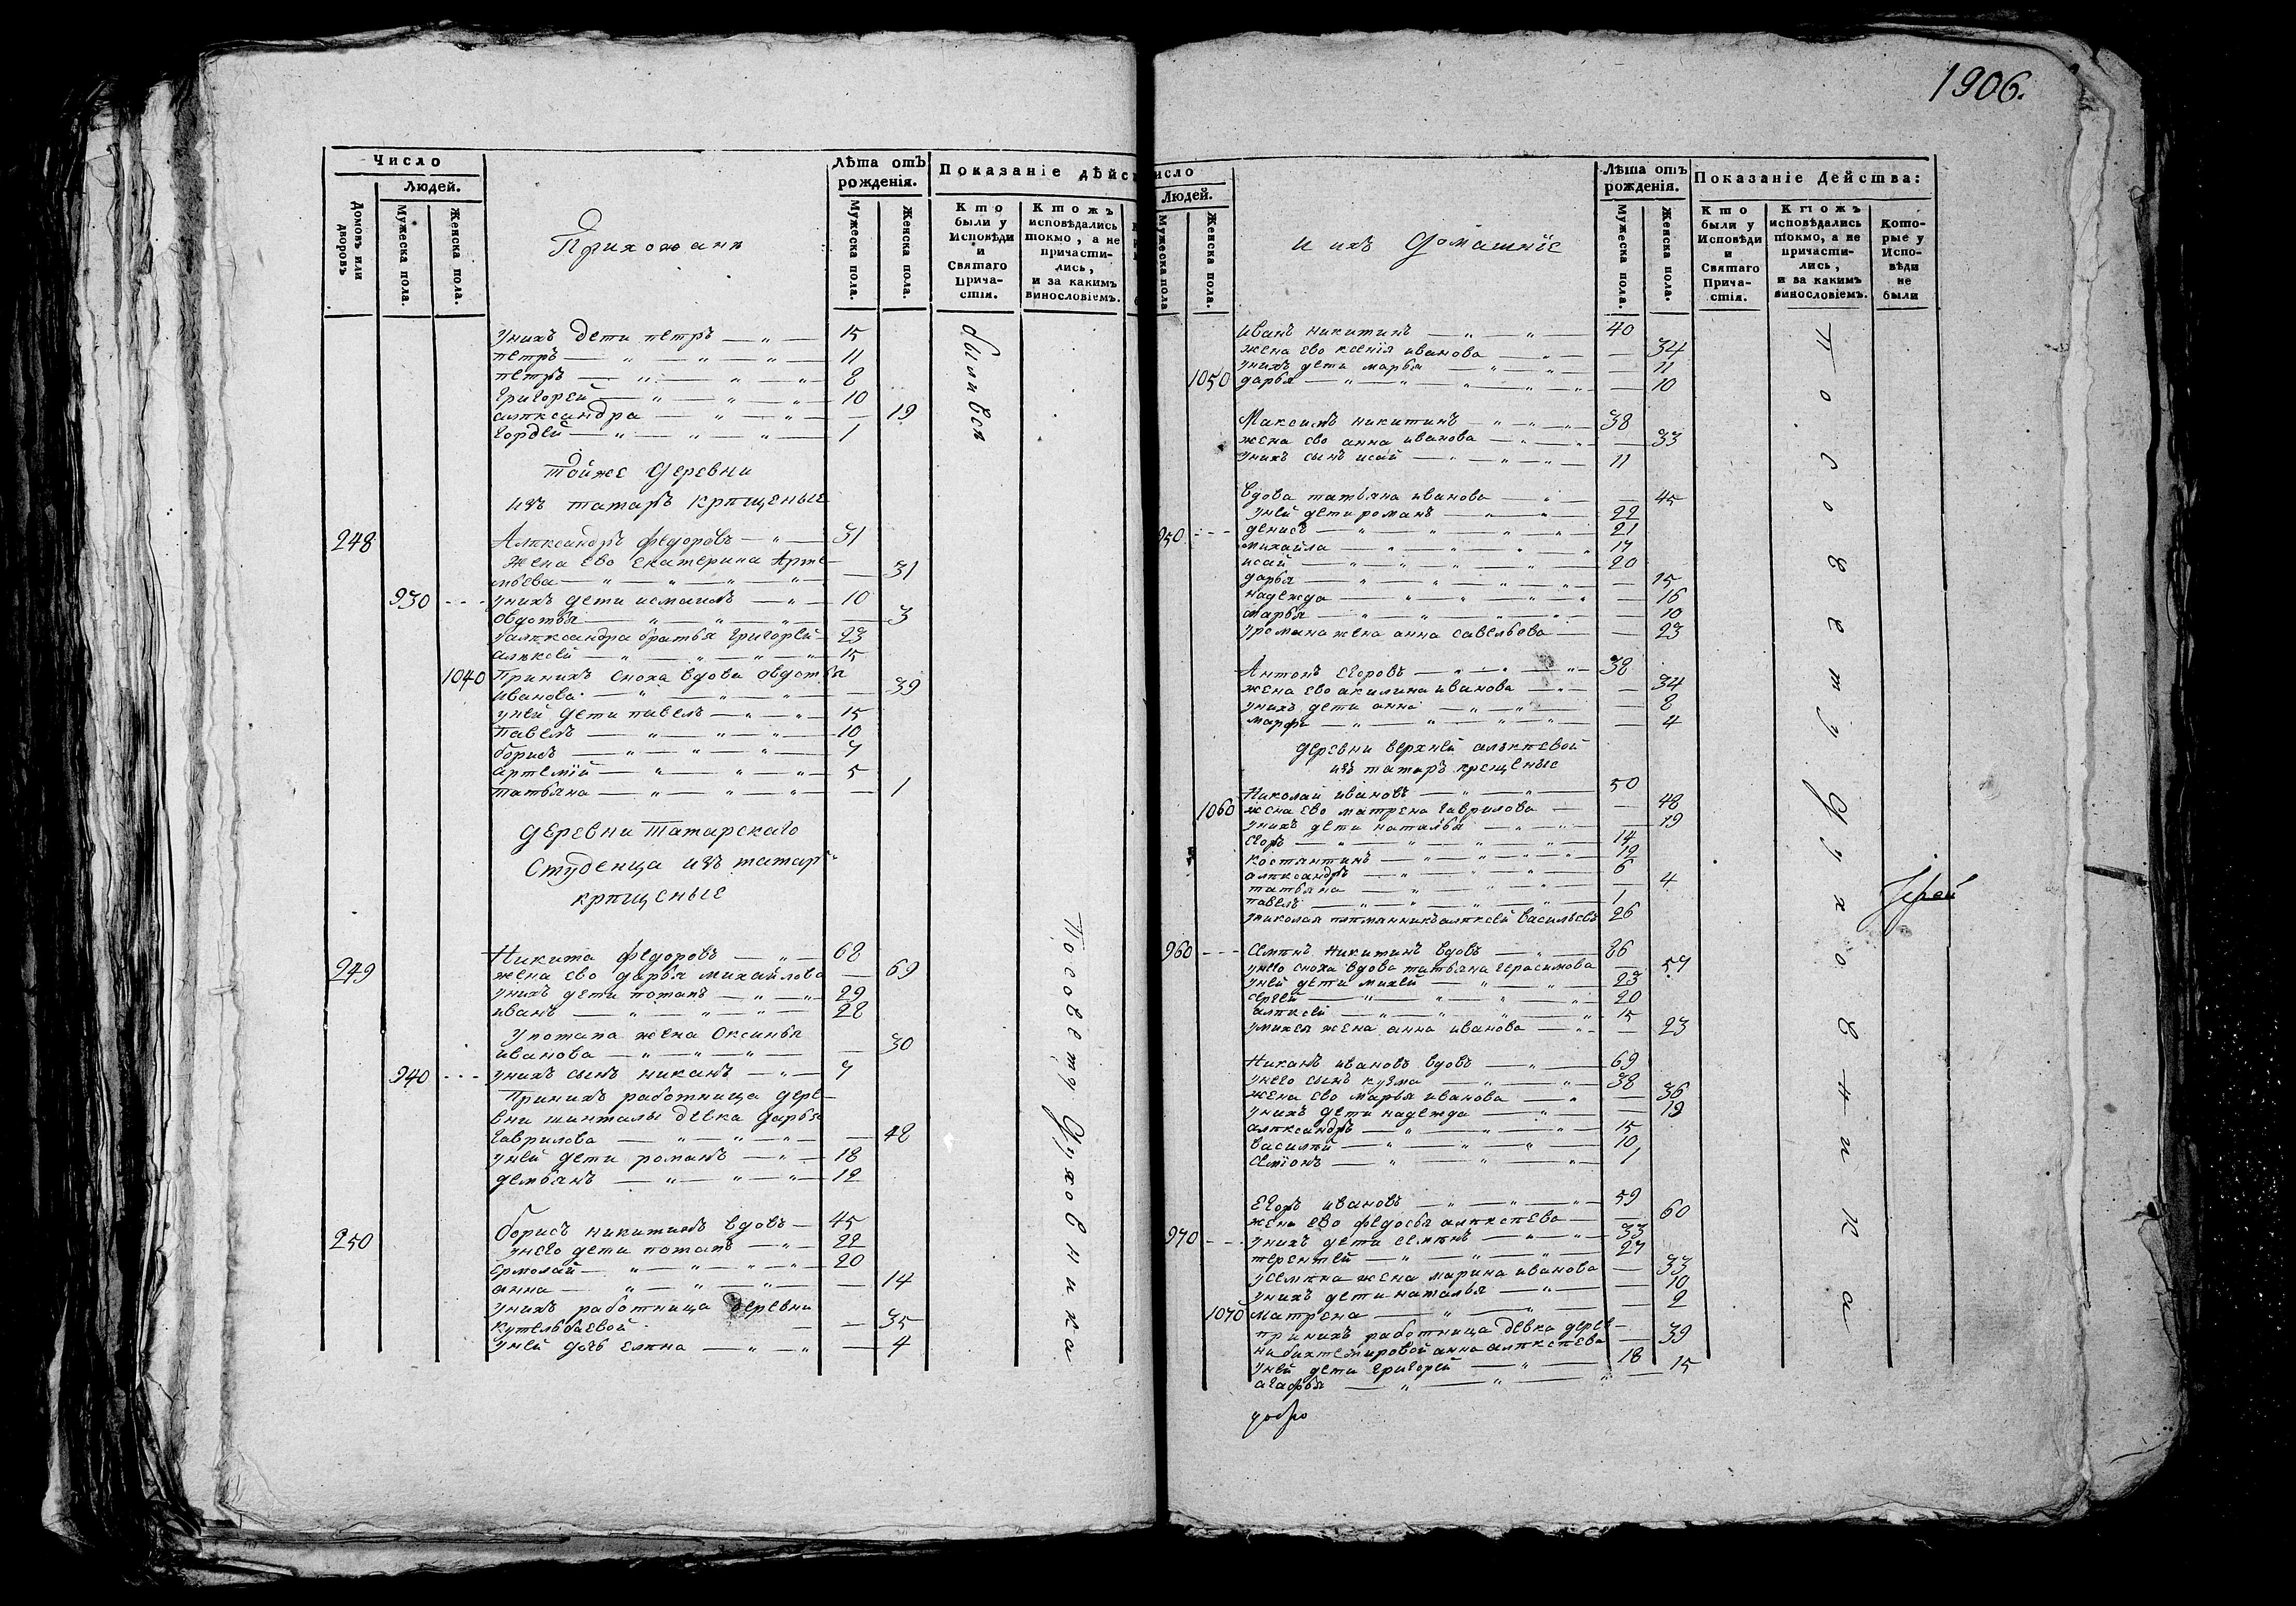 1906.
Число
Людей.
Домовъ или дворовъ
Мужеска пола.
Женска пола.
Прихожанъ
Лѣта отъ рожденія.
Мужеска пола.
Женска пола.
Показаніе дѣйс
Кто были у Исповѣди и Святаго Прича-стія.
Ктожъ исповѣдались токмо, а не причасти-лись, и за какимъ винословіемъ.
унихъ дети петръ 15
петръ 11
петръ 8
григорей 10
алѣксандра 19
гордей 1
тойже деревни
изъ татаръ крѣщеные
248 Алѣксандръ федоровъ 31
жена ево екатерина Арте-
мьева 31
930 унихъ дети исмаилъ 10
овдотья 3
уалѣксандра братья григорей 23
алѣксей 15
1040 Принихъ сноха вдова овдотья
иванова 39
уней дети павелъ 15
Павелъ 10
борисъ 7
артемий 5
татьяна 1
деревни татарскаго
Студенца изъ татаръ
крѣщеные
249 Никита федоровъ 68
жена ево дарья михайлова 69
унихъ дети потапъ 29
иванъ 28
употапа жена Оксинья
иванова 30
940 унихъ сынъ никанъ 7
Принихъ работница дере-
вни шинталы девка дарья
гаврилова 48
уней дети романъ 18
демьянъ 12
250 борисъ никитинъ вдовъ 45
унего дети потапъ 22
ермолай 20
анна 14
унихъ работница деревни
кутельбаевой 35
уней дочь елѣна 4
были вся
По совету духовника
исло
Людей.
Мужеска пола
Женска пола.
и ихъ домашніе
Лѣта отъ рожденія.
Мужеска пола.
Женска пола.
Показаніе Действа:
Кто были у Исповѣди и Святаго Прича-стія.
Ктожъ исповѣдались токмо, а не причасти-лись, и за какимъ винословіемъ.
Кото-рые у Испо-вѣди не были
иванъ никитинъ 40
жена ево ксенія иванова 34
унихъ дети марья 11
1050 дарья 10
Максимъ никитинъ 38
жена ево анна иванова 33
унихъ сынъ исай 11
вдова татьяна иванова 45
уней дети романъ 22
950 денисъ 21
михайла 17
исай 20
дарья 15
надежда 16
марья 10
уромана жена анна савельева 23
Антонъ егоровъ 38
жена ево акилина иванова 34
унихъ дети анна 8
марфа 4
деревни верхней алькѣевой
изъ татаръ крещеные
Николай ивановъ 50
1060 жена ево матрена гаврилова 48
унихъ дети наталья 19
егоръ 14
костянтинъ 12
алѣксандръ 6
татьяна 4
павелъ 1
униколая плѣманникъ алѣксей васильевъ 26
960 семѣнъ никитинъ вдовъ 86
унего сноха вдова татьяна герасимова 57
уней дети михей 23
сергей 20
алѣксей 15
умихея жена анна иванова 23
Никанъ ивановъ вдовъ 69
унего сынъ кузма 38
жена ево марья иванова 36
унихъ дети надежда 19
алѣксандръ 15
василѣй 10
семіонъ 1
егоръ ивановъ 59
жена ево федосья алѣксѣева 60
970 унихъ дети семѣнъ 33
терентей 27
усемѣна жена марина иванова 33
унихъ дети наталья 10
1070 матрена 2
принихъ работница девка дерев-
ни бихтемировой анна алѣксѣева 39
уней дети григорей 18
агафья 15
По совету духовника
Іерей